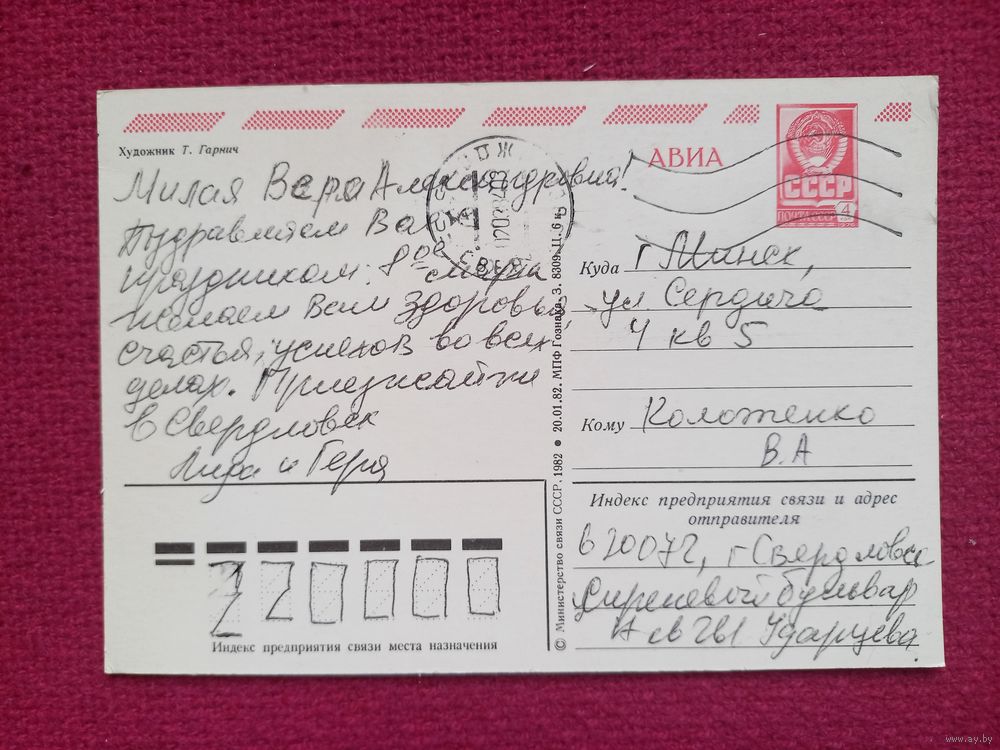 Художник Т. Гарнич
АВИА
СССР
ПОЧТА СССР
4
Милая Вера Александровна!
Поздравляем Вас с
праздником 8ое марта
Желаем Вам здоровья,
счастья, успехов во всех
делах. Приезжайте
в Свердловск
Лида и Гера
Куда г Минск,
ул. Сердича
4 кв 5
Кому Коложенко
В.А
Индекс предприятия связи и адрес
отправителя
620072, г Свердловск
Сиреневый бульвар
Ударцева
Индекс предприятия связи места назначения
© Министерство связи СССР. 1982 • 20.01.82. МПФ Гознака. З. 8309. Ц. 6 к.
www.ay.by